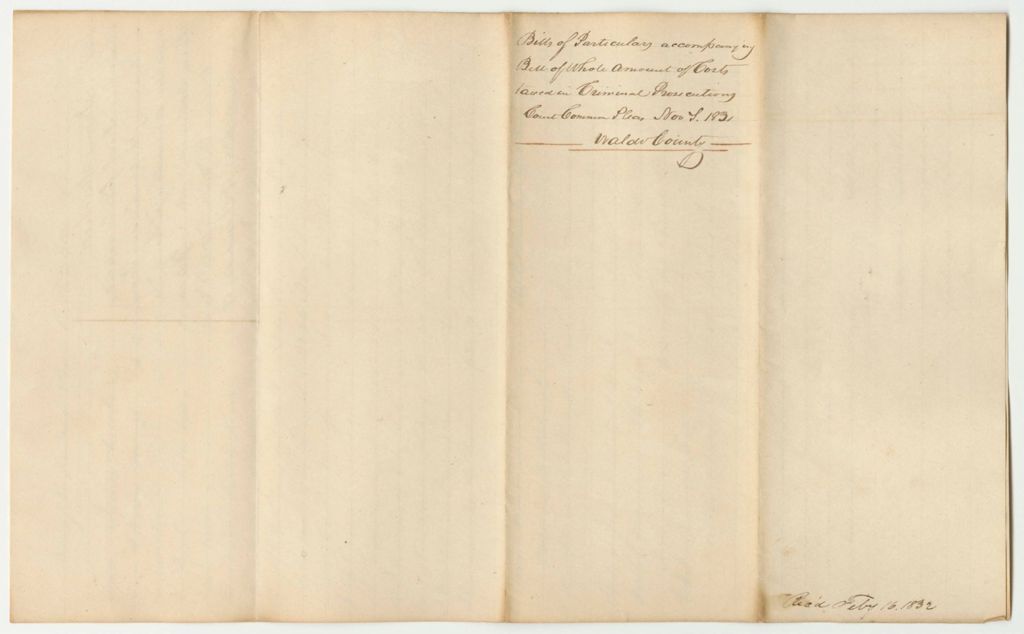 Bills of Particulars accompanying
Bill of Whole Amount of Costs
taxed in Criminal Prosecutions
Court Common Pleas Nov T. 1831
Waldo County
Rec'd Feby 16. 1832